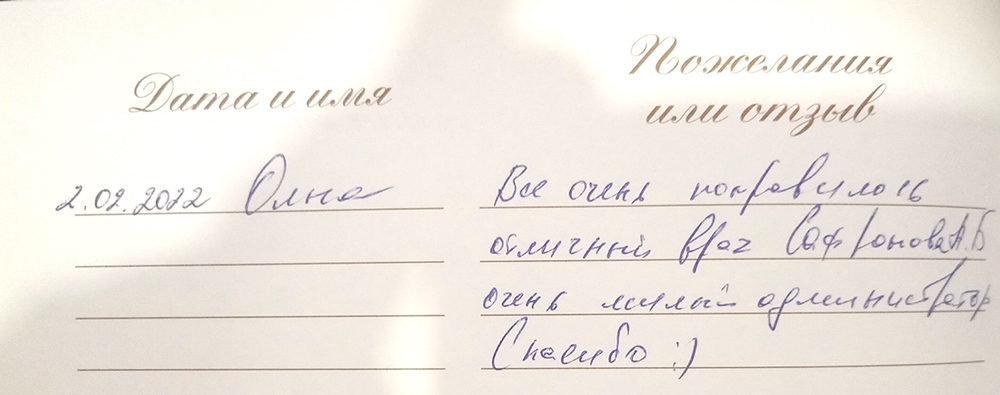 Дата и имя
Пожелания
или отзыв
2.02.2022
Все очень понравилось
отличный врач Сафронова А.Б
очень милый администратор
Спасибо :)